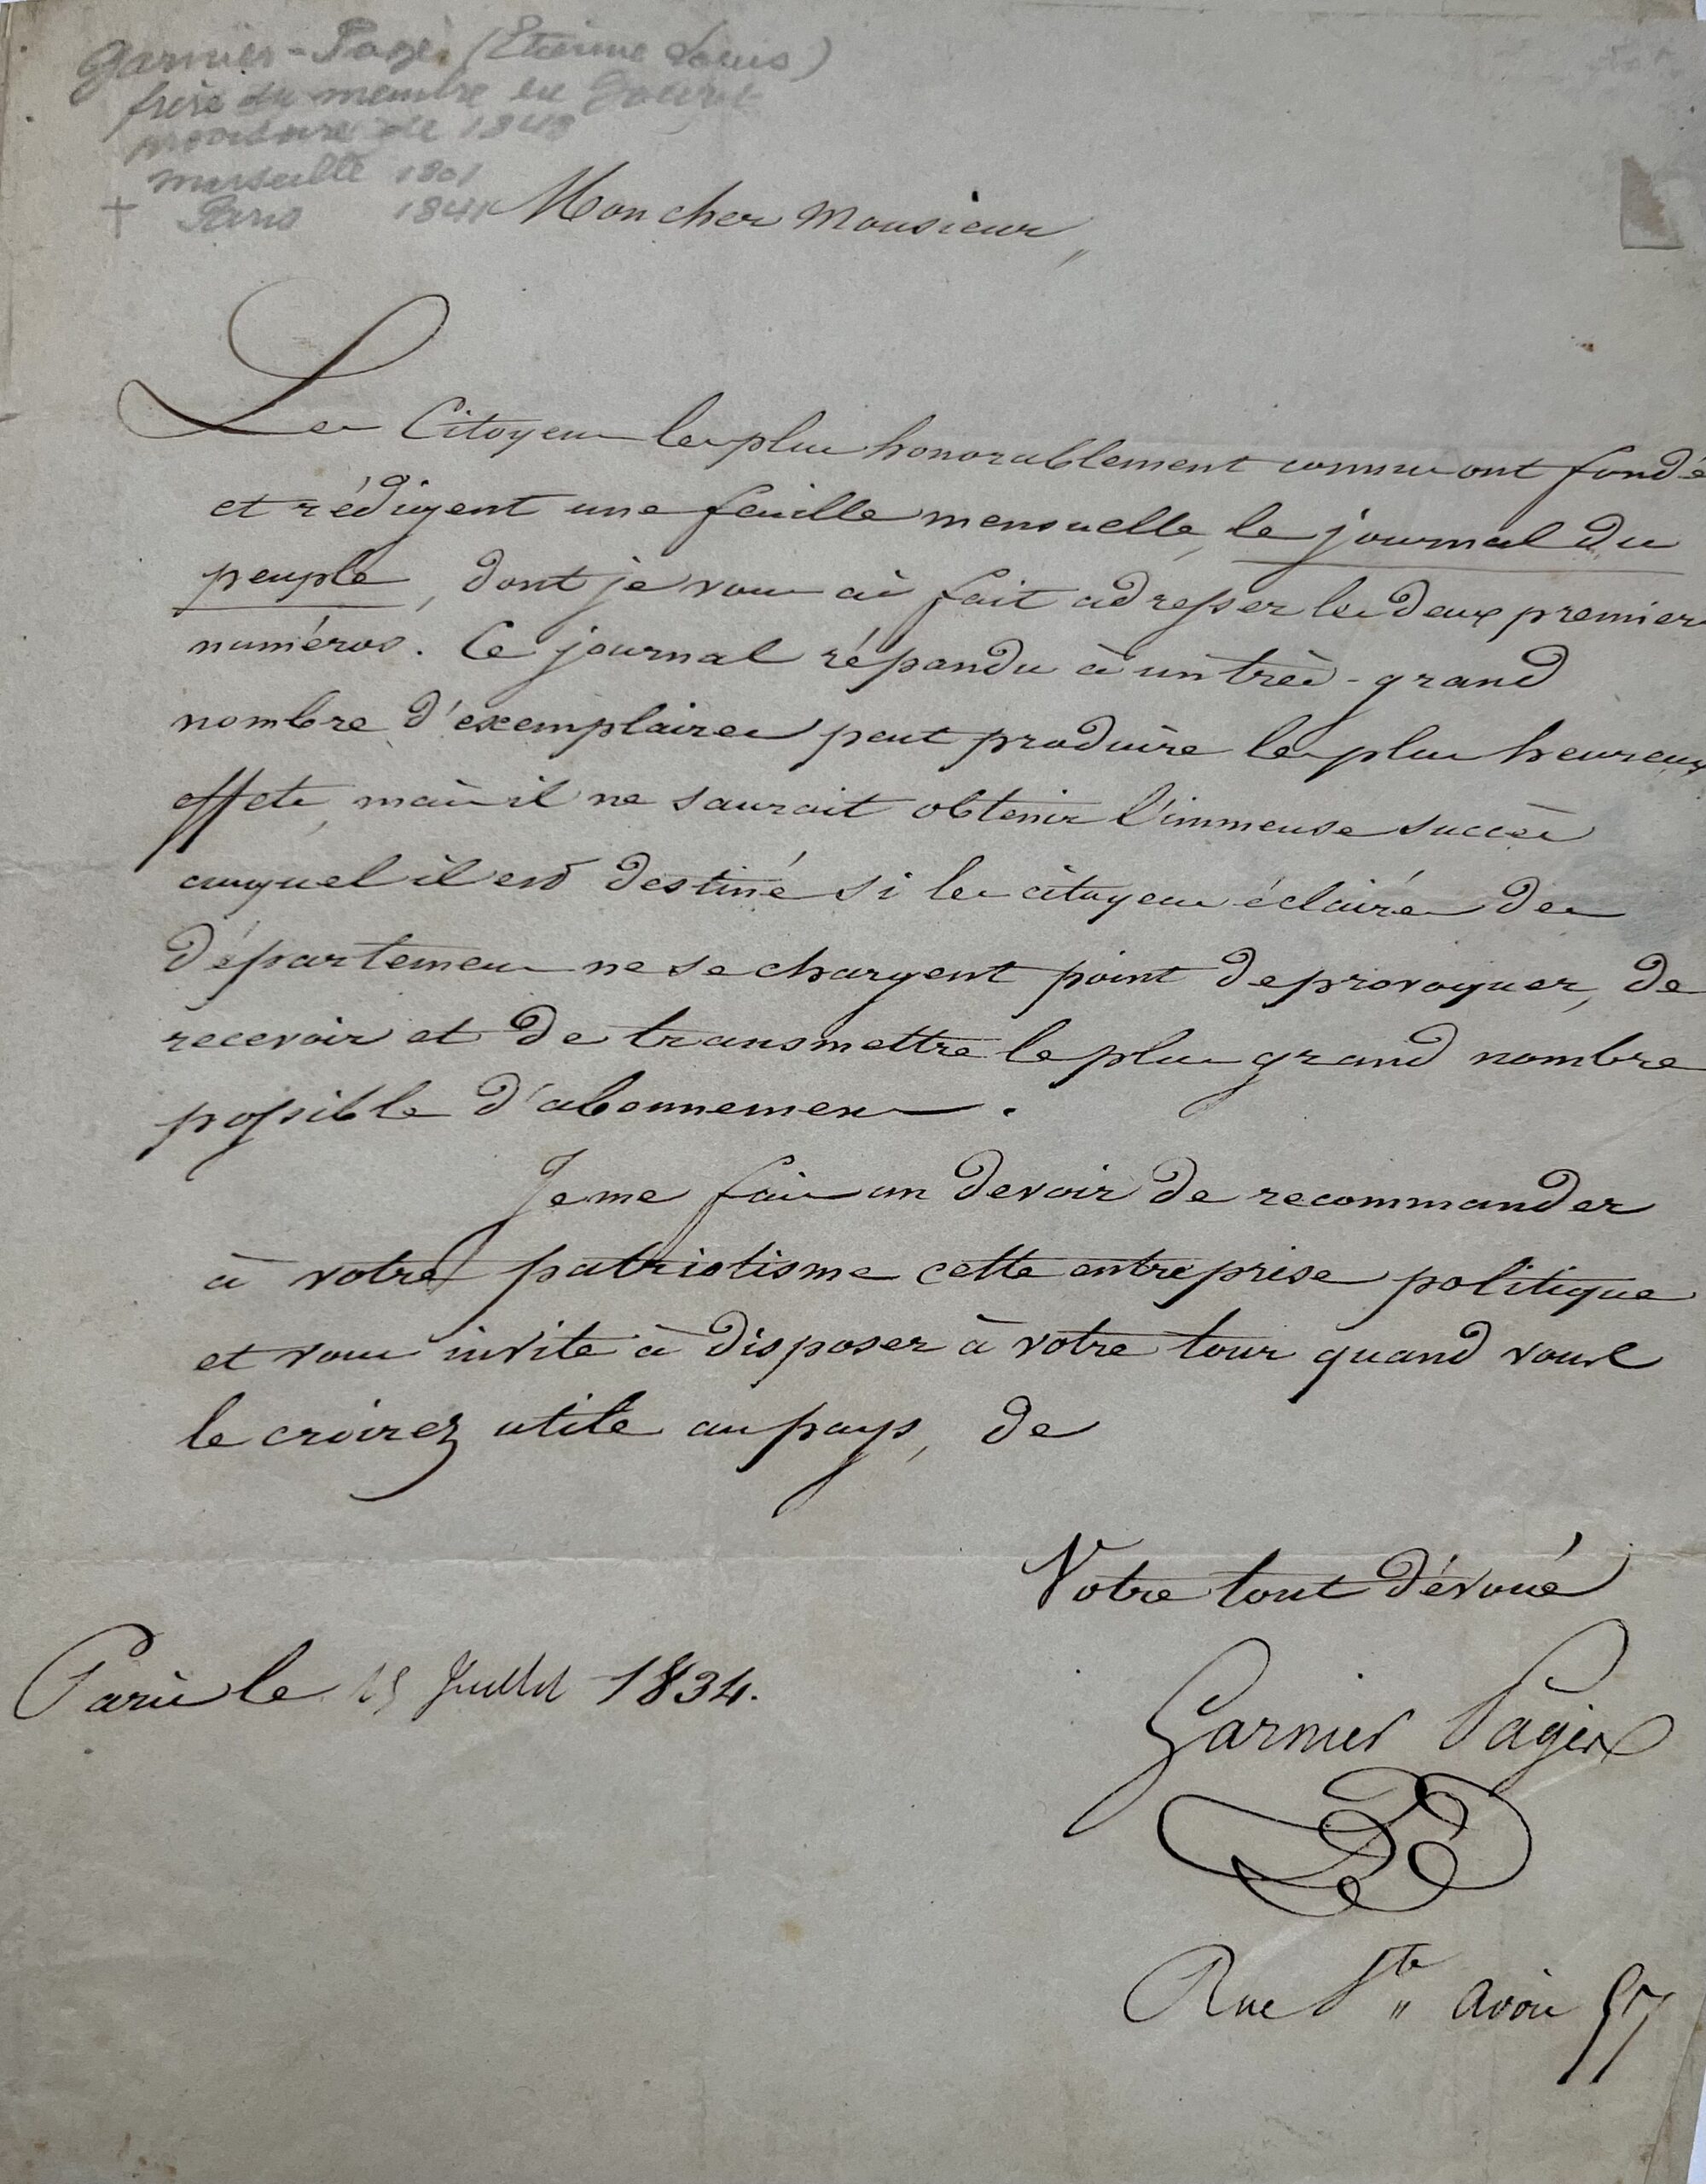 Garnier-Pagès (Etienne Louis)
frère du membre du Gouvt
provisoire de 1848
Marseille 1801
+ Paris 1841
Mon cher Monsieur,
Les Citoyens les plus honorablement connus ont fondé
et rédigent une feuille mensuelle, le journal du
peuple, dont je vous ai fait adresser les deux premiers
numéros. Ce journal répandu à un très-grand
nombre d'exemplaires peut produire les plus heureux
effets, mais il ne saurait obtenir l'immense succès
auquel il est destiné si les citoyens éclairés des
départemens ne se chargent point de provoquer, de
recevoir et de transmettre le plus grand nombre
possible d'abonnemens.
Je me fais un devoir de recommander
à votre patriotisme cette entreprise politique
et vous invite à disposer à votre tour quand vous
le croirez utile au pays, de
Votre tout dévoué
Paris le 15 Juillet 1834.
Garnier Pagès
Rue Ste Avoie 57